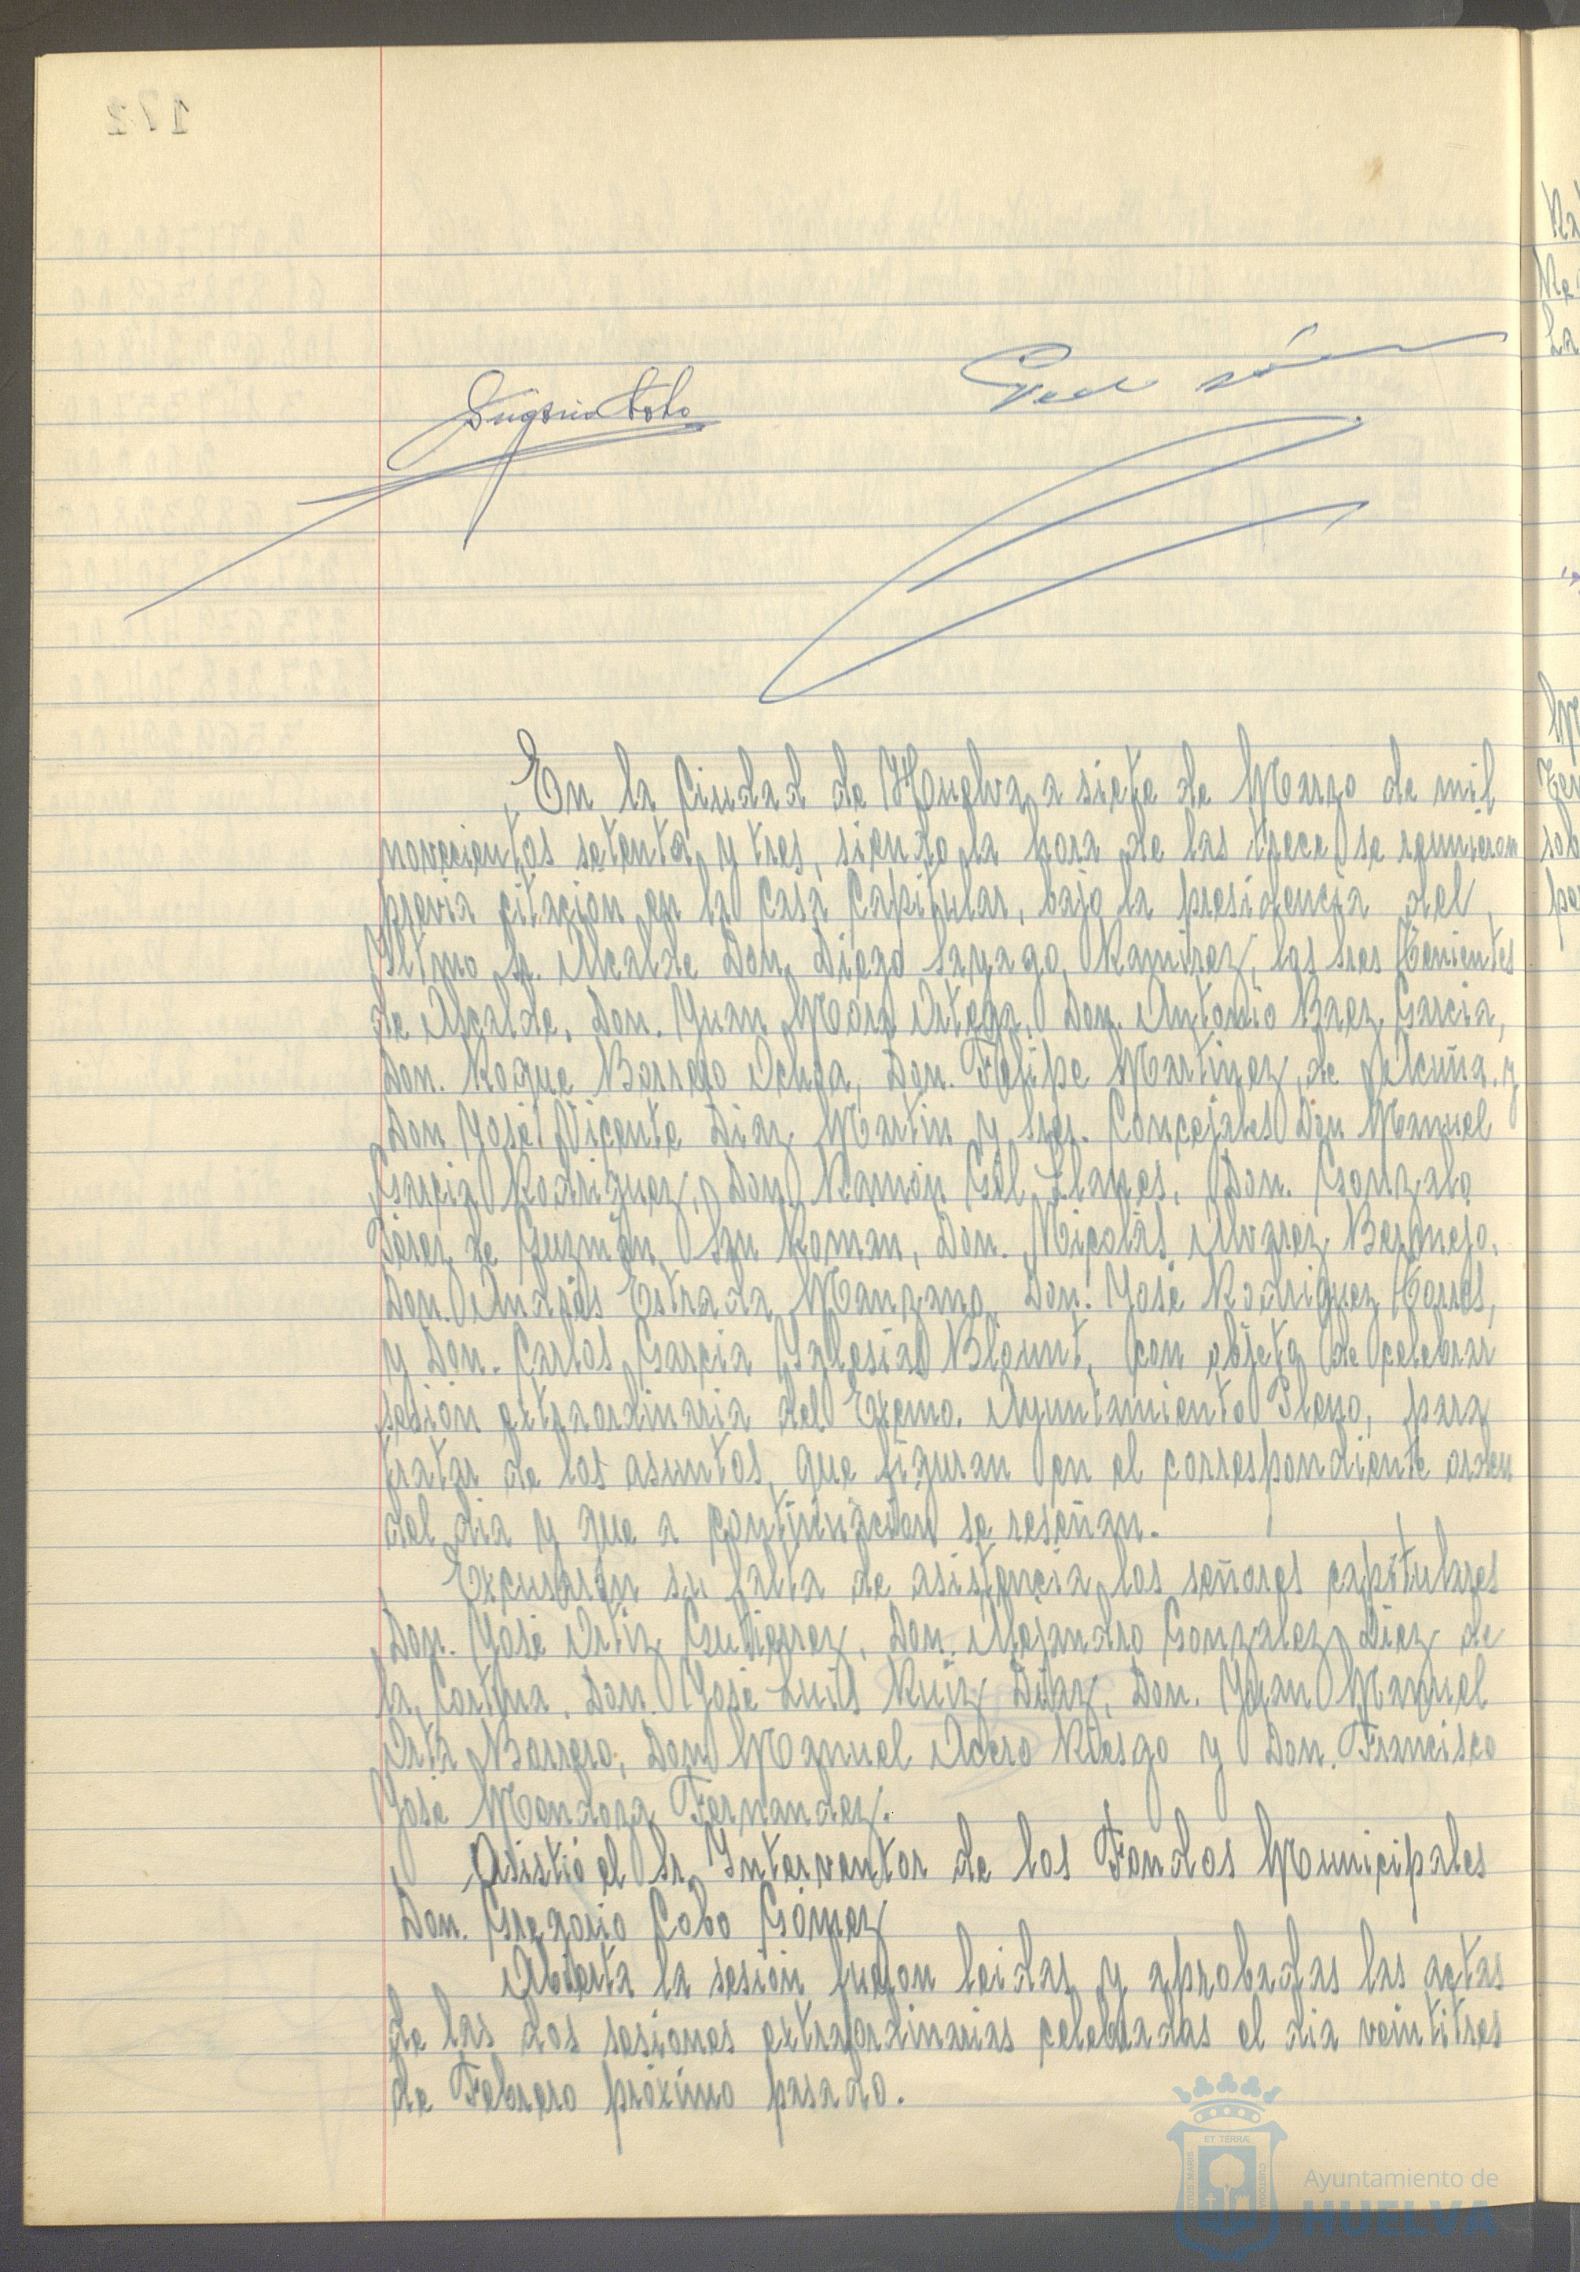 En la Ciudad de Huelva a siete de Marzo de mil
novecientos setenta y tres, siendo la hora de las trece se reunieron
previa citación en la Casa Capitular, bajo la presidencia del
Iltmo Sr. Alcalde Don Diego Sayago Ramirez, los sres Tenientes
de Alcalde, Don. Juan Mora Ortega, Don. Antonio Baez Garcia,
Don. Roque Borrego Ochoa, Don. Felipe Martinez de Acuña y
Don José Vicente Diaz Martin y sres. Concejales Don Manuel
Garcia Rodriguez, Don Ramón Gil Llanes, Don. Gonzalo
Pérez de Guzmán San Roman, Don. Nicolás Alvarez Bermejo,
Don. Andrés Estrada Manzano, Don. José Rodriguez Torres,
y Don. Carlos Garcia Yglesias Blount, con objeto de celebrar
sesión extraordinaria del Excmo. Ayuntamiento Pleno, para
tratar de los asuntos, que figuran en el correspondiente orden
del dia y que a continuación se reseñan.
Excusarón su falta de asistencia los señores capitulares
Don. José Ortiz Gutierrez, Don. Alejandro Gonzalez Diez de
la Cortina, Don. José Luis Ruiz Díaz, Don. Juan Manuel
Orta Borrero, Don Manuel Acero Riesgo y Don. Francisco
José Mendoza Fernandez.
Asistió el Sr. Interventor de los Fondos Municipales
Don. Gregorio Cobo Gómez
Abierta la sesión fueron leidas y aprobadas las actas
de las dos sesiones extraordinarias celebradas el dia veintitres
de Febrero próximo pasado.
ET TERRÆ
Ayuntamiento de
HUELVA